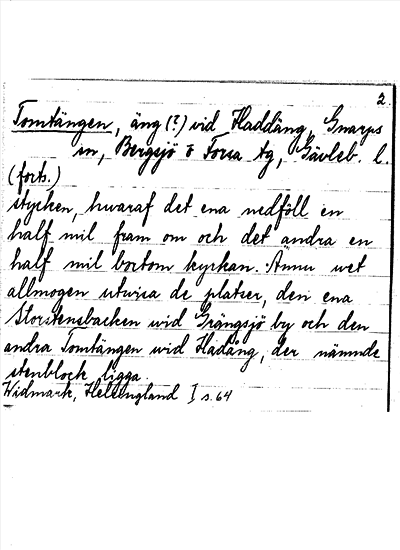 2.
Tomtängen, äng (?) vid Haddäng, Gnarps
sn, Bergsjö o Forsa tg, Gävleb. l.
(forts.)
stycken, hwaraf det ena nedföll en
half mil fram om och det andra en
half mil bortom kyrkan. Ännu wet
allmogen utwisa de platser, den ena
Storstensbacken wid Grängsjö by och den
andra Tomtängen wid Hadäng, der nämnde
stenblock ligga.
Widmark, Helsingland I s. 64